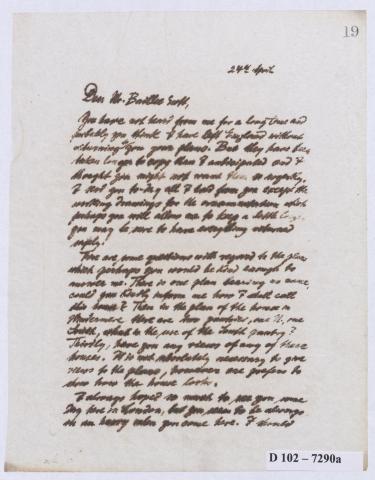 19
24th April
Dear Mr. Baillie Scott,
You have not heard from me for a long time and
probably you think I have left England without
returning you your plans. But they have been
taken longer to copy than I anticipated and I
thought you might not want them so urgently.
I send you to-day all I had from you except the
working drawings for the which
perhaps you will allow me to keep a little longer.
you may be sure to have everything returned
safely.
There are some questions with regard to the plans
which perhaps you would be kind enough to
answer me. There is one plan bearing no name,
could you kindly inform me how I shall call
this house? Then in the plan of the house in
there are two pantries, one N, one
South, what is the use of the South pantry?
Thirdly, have you any views of any of these
houses. It is not absolutely necessary to give
views to the plans, however we prefer to
show how the house looks.
I always hoped so much to see you some
day here in London, but you seem to be always
in hurry when you come here. I should
D 102 – 7290a